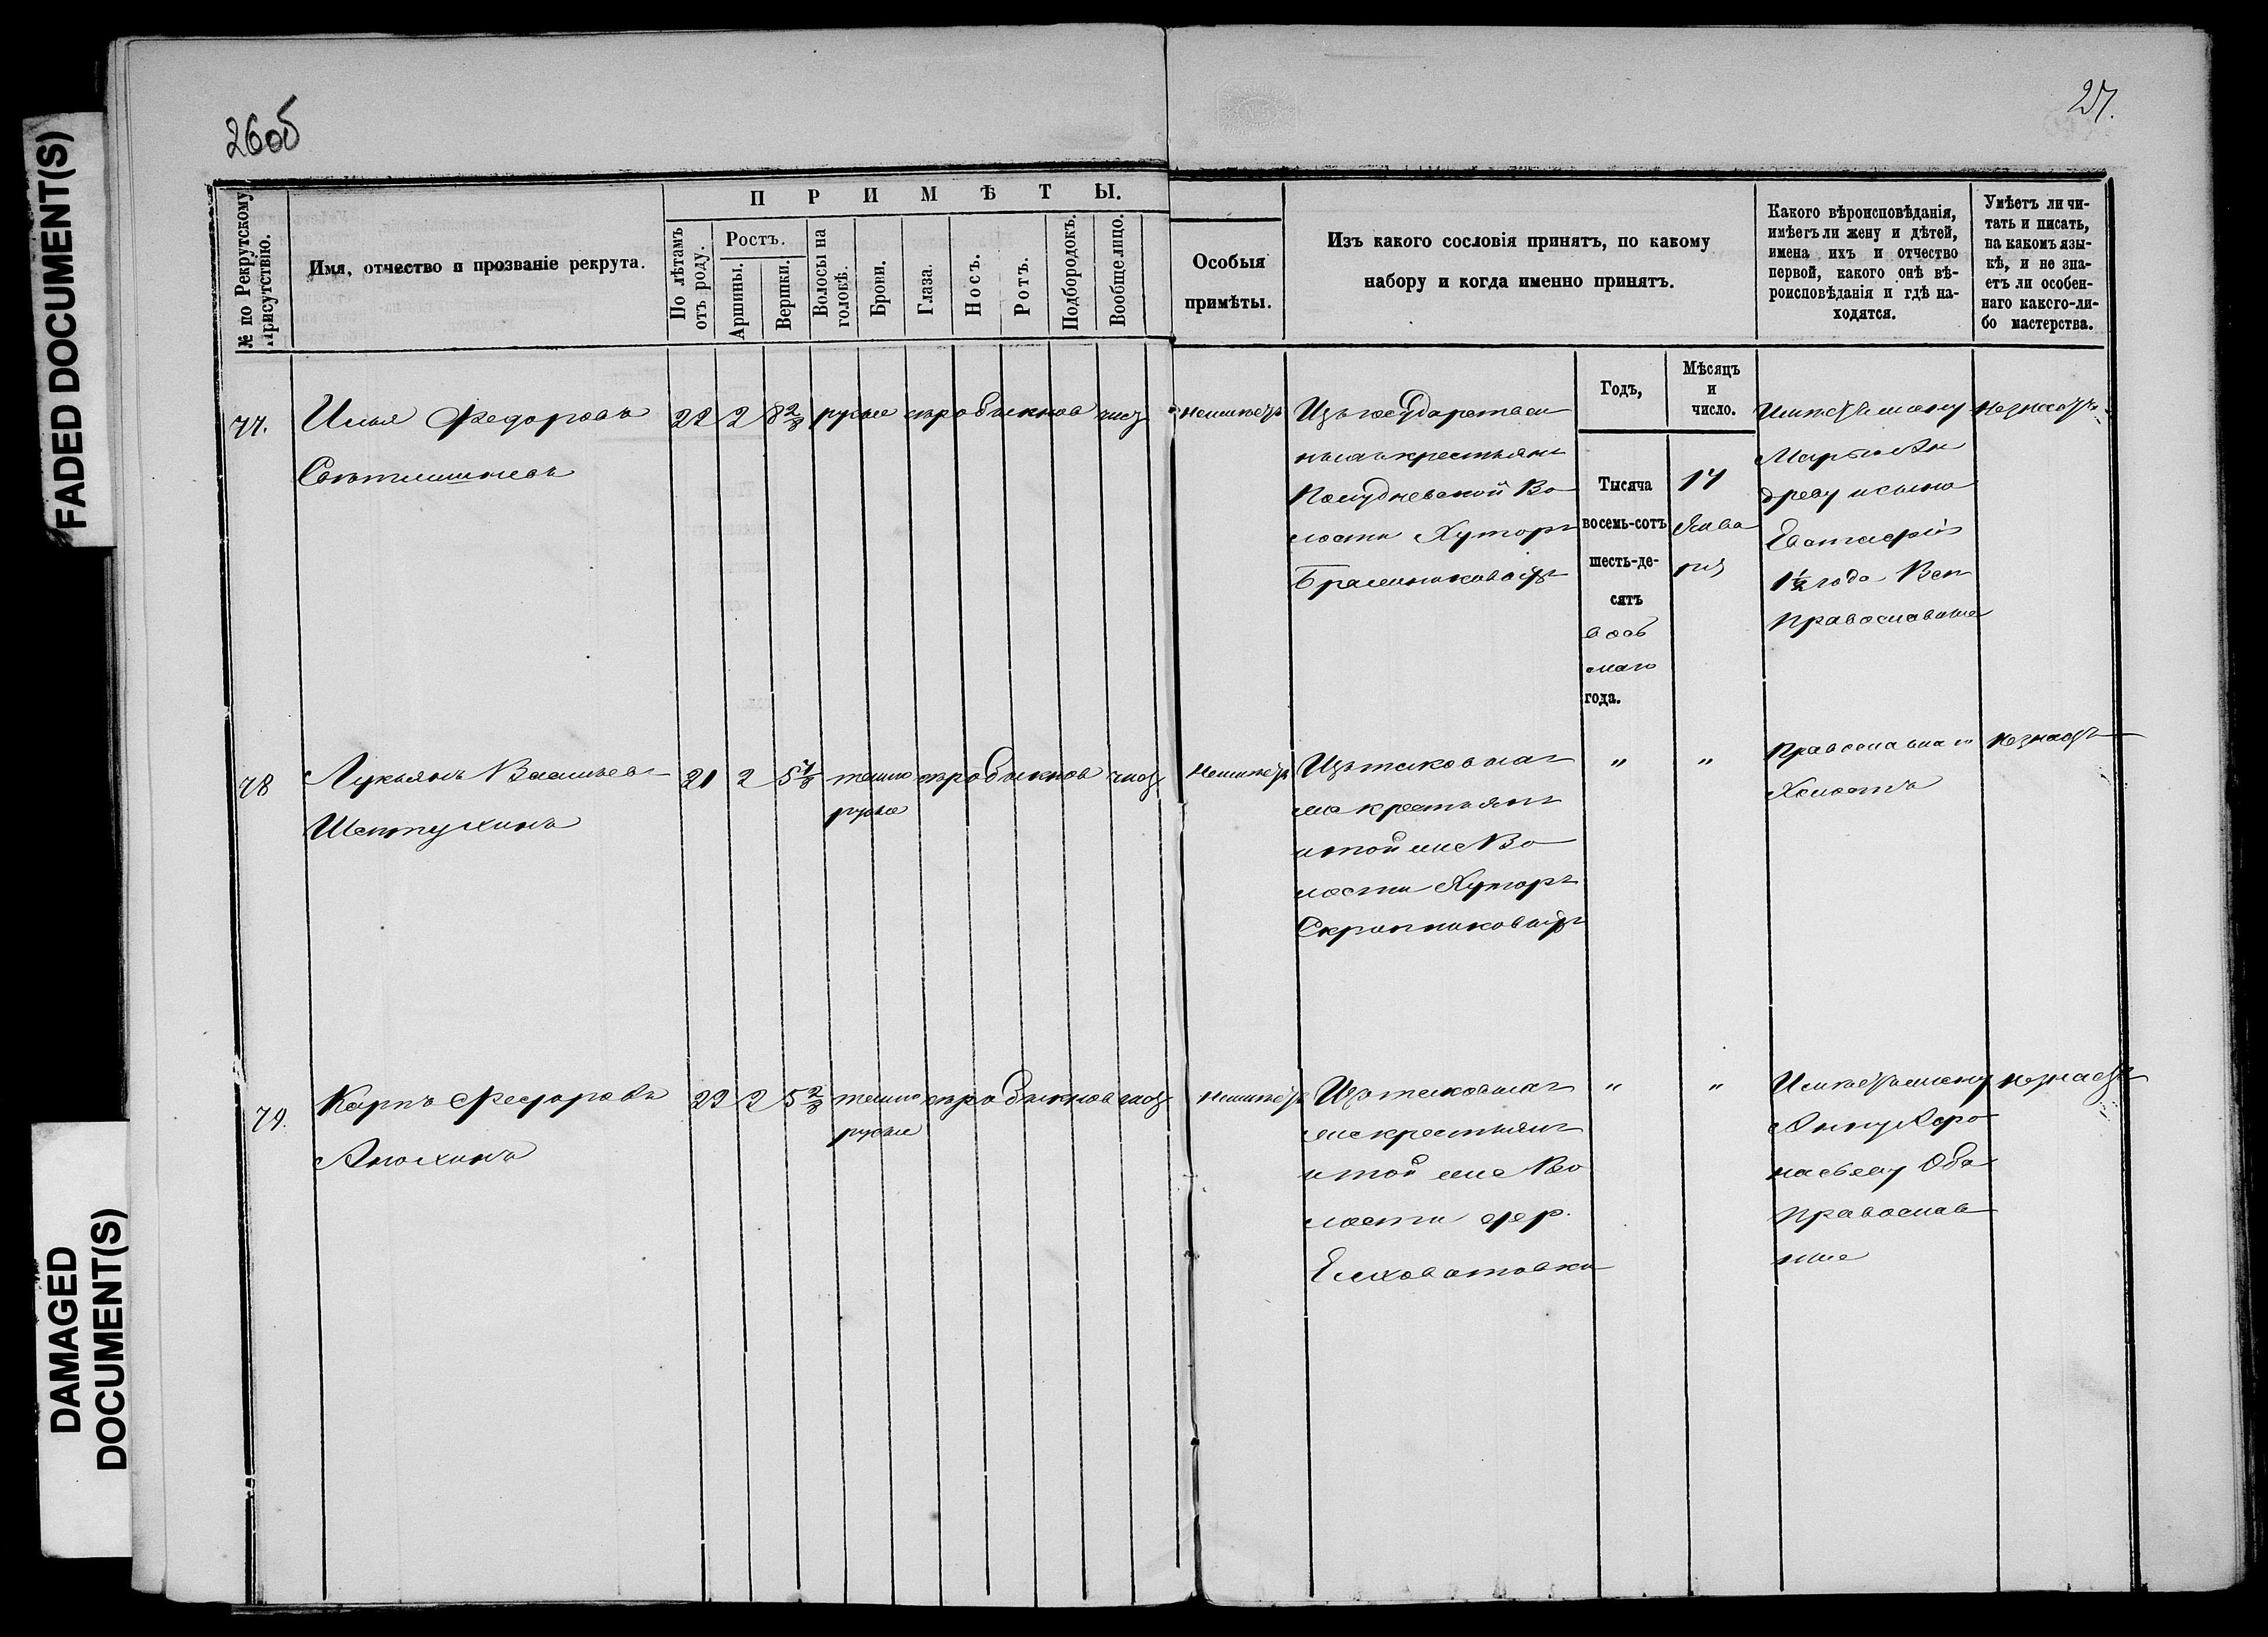 FADED DOCUMENT(S)
DAMAGED
DOCUMENT(S)
26об
27.
№ по Рекрутскому
присутствію.
Имя, отчество и прозваніе рекрута.
ПРИМѢТЫ.
По лѣтамъ
отъ роду.
Ростъ.
Аршины.
Вершки.
Волосы на
головѣ.
Брови.
Глаза.
Носъ.
Ротъ.
Подбородокъ.
Вообще лицо.
Особыя
примѣты.
Изъ какого сословія принятъ, по какому
набору и когда именно принятъ.
Какого вѣроисповѣданія,
имѣетъ ли жену и дѣтей,
имена ихъ и отчество
первой, какого онѣ вѣ-
роисповѣданія и гдѣ на-
ходятся.
Умѣетъ ли чи-
тать и писать,
на какомъ язы-
кѣ, и не зна-
етъ ли особен-
наго какого-ли-
бо мастерства.
Годъ,
Мѣсяцъ
и
число.
77.
Илья Федоровъ
22 2 8 2/8 русые сѣр обыкнов чист
Неимѣетъ
Изъ государствен
ныхъ крестьянъ
Полудневской Во
лости Хуторъ
Тысяча
восемь-сотъ
шесть-де-
сятъ
вось
маго
года.
17
Янва
ря
Имѣетъ жену
Марью Ан
дрееву и сына
1½ года Всѣ
православные
незнаетъ
78
Лукьянъ Васильевъ
Шептухинъ
21 2 5 7/8 темно сѣр обыкнов чист
русые
Неимѣетъ
Изъ таковыхъ
же крестьянъ
и той же Во
лости Хуторъ
" "
Православный
Холостъ
незнаетъ
79.
Карпъ Федоровъ
Анохинъ
22 2 5 2/8 темно сѣр обыкнов чист
русые
Неимѣетъ
Изъ таковыхъ
же крестьянъ
и той же Во
лости дер.
Елховатовки
" "
Имѣетъ жену
Анну Афо
насьеву Оба
православ
ные
незнаетъ